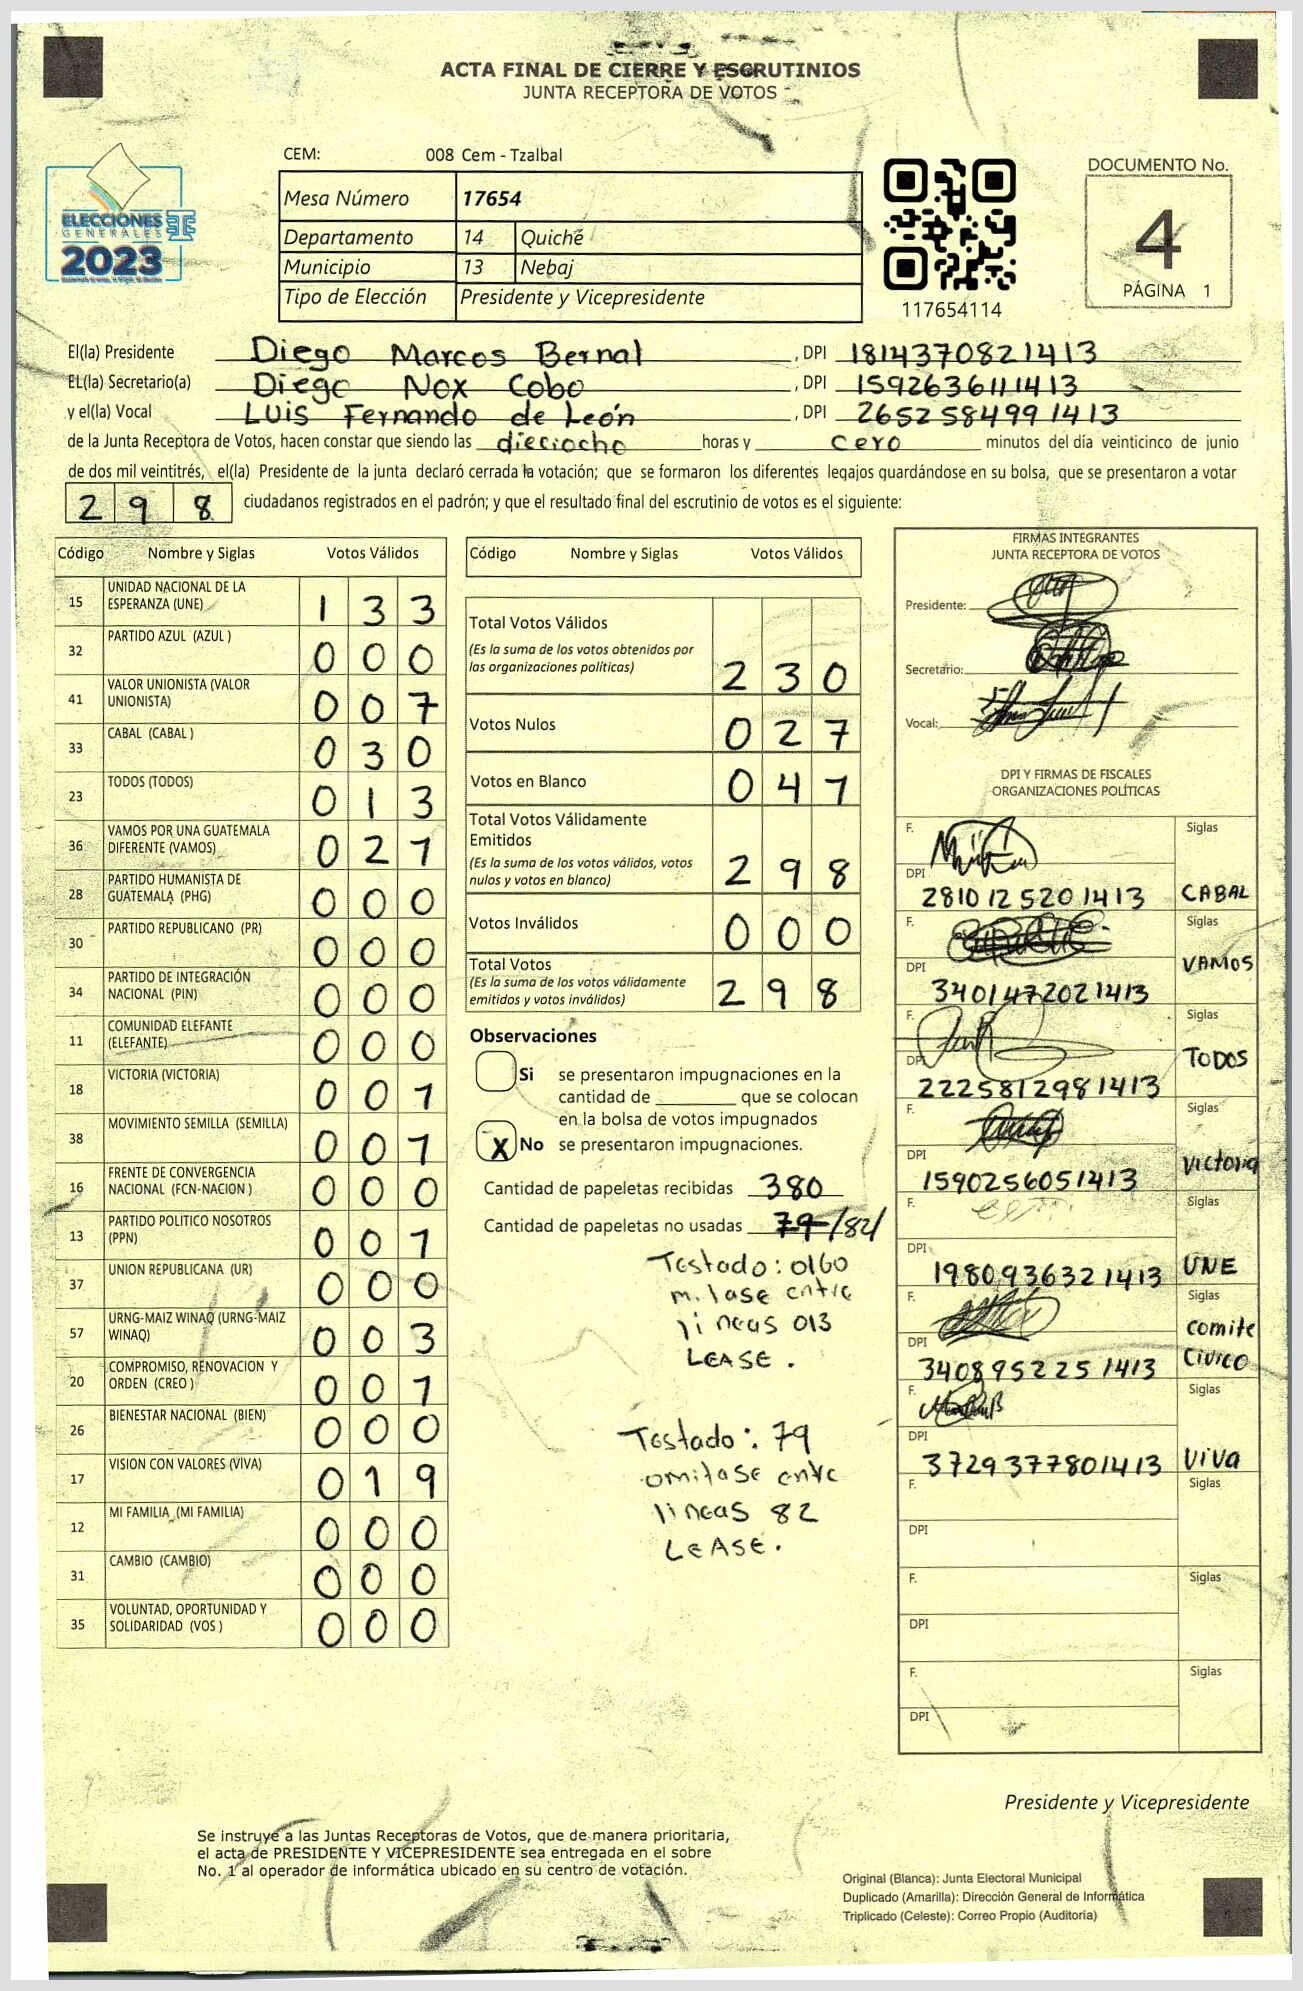 ACTA FINAL DE CIERRE Y ESCRUTINIOS
JUNTA RECEPTORA DE VOTOS
ELECCIONES
GENERALES
2023
CEM: 008 Cem - Tzalbal
Mesa Número 17654
Departamento 14 Quiché
Municipio 13 Nebaj
Tipo de Elección Presidente y Vicepresidente
117654114
DOCUMENTO No.
4
PÁGINA 1
El(la) Presidente Diego Marcos Bernal , DPI 1814370821413
EL(la) Secretario(a) Diego Nox Cobo , DPI 1592636111413
y el(la) Vocal Luis Fernando de León , DPI 2652584991413
de la Junta Receptora de Votos, hacen constar que siendo las dieciocho horas y cero minutos del día veinticinco de junio
de dos mil veintitrés, el(la) Presidente de la junta declaró cerrada la votación; que se formaron los diferentes legajos guardándose en su bolsa, que se presentaron a votar
298 ciudadanos registrados en el padrón; y que el resultado final del escrutinio de votos es el siguiente:
Código Nombre y Siglas Votos Válidos
15 UNIDAD NACIONAL DE LA
ESPERANZA (UNE) 133
32 PARTIDO AZUL (AZUL ) 000
41 VALOR UNIONISTA (VALOR
UNIONISTA) 007
33 CABAL (CABAL ) 030
23 TODOS (TODOS) 013
36 VAMOS POR UNA GUATEMALA
DIFERENTE (VAMOS) 021
28 PARTIDO HUMANISTA DE
GUATEMALA (PHG) 000
30 PARTIDO REPUBLICANO (PR) 000
34 PARTIDO DE INTEGRACIÓN
NACIONAL (PIN) 000
11 COMUNIDAD ELEFANTE
(ELEFANTE) 000
18 VICTORIA (VICTORIA) 001
38 MOVIMIENTO SEMILLA (SEMILLA) 001
16 FRENTE DE CONVERGENCIA
NACIONAL (FCN-NACION ) 000
13 PARTIDO POLITICO NOSOTROS
(PPN) 001
37 UNION REPUBLICANA (UR) 000
57 URNG-MAIZ WINAQ (URNG-MAIZ
WINAQ) 003
20 COMPROMISO, RENOVACION Y
ORDEN (CREO ) 001
26 BIENESTAR NACIONAL (BIEN) 000
17 VISION CON VALORES (VIVA) 019
12 MI FAMILIA (MI FAMILIA) 000
31 CAMBIO (CAMBIO) 000
35 VOLUNTAD, OPORTUNIDAD Y
SOLIDARIDAD (VOS ) 000
Código Nombre y Siglas Votos Válidos
Total Votos Válidos
(Es la suma de los votos obtenidos por
las organizaciones políticas) 230
Votos Nulos 027
Votos en Blanco 041
Total Votos Válidamente
Emitidos
(Es la suma de los votos válidos, votos
nulos y votos en blanco) 298
Votos Inválidos 000
Total Votos
(Es la suma de los votos válidamente
emitidos y votos inválidos) 298
Observaciones
Si se presentaron impugnaciones en la
cantidad de ________ que se colocan
en la bolsa de votos impugnados
X No se presentaron impugnaciones.
Cantidad de papeletas recibidas 380
Cantidad de papeletas no usadas 79/82/
Testado: 0160
entre
lineas 013
LEASE.
Testado: 79
omitase entre
lineas 82
LEASE.
FIRMAS INTEGRANTES
JUNTA RECEPTORA DE VOTOS
Presidente:
Secretario:
Vocal:
DPI Y FIRMAS DE FISCALES
ORGANIZACIONES POLÍTICAS
F. Siglas
DPI 2810125201413 CABAL
F. Siglas
DPI 3401472021413 VAMOS
F. Siglas
DPI 2225812981413 TODOS
F. Siglas
DPI 1590256051413 Victoria
F. Siglas
DPI 1980936321413 UNE
F. Siglas
DPI 3408952251413 comite
Civico
F. Siglas
DPI 3729377801413 VIVA
F. Siglas
DPI
F. Siglas
DPI
F. Siglas
DPI
Presidente y Vicepresidente
Se instruye a las Juntas Receptoras de Votos, que de manera prioritaria,
el acta de PRESIDENTE Y VICEPRESIDENTE sea entregada en el sobre
No. 1 al operador de informática ubicado en su centro de votación.
Original (Blanca): Junta Electoral Municipal
Duplicado (Amarilla): Dirección General de Informática
Triplicado (Celeste): Correo Propio (Auditoría)